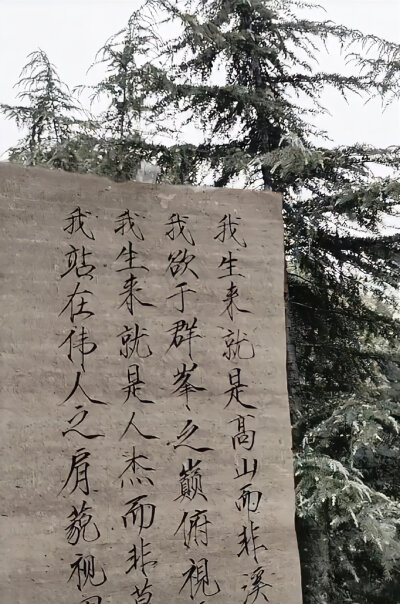 我生来就是高山而非溪
我欲于群峯之巅俯視
我生来就是人杰而非
我站在伟人之肩藐视